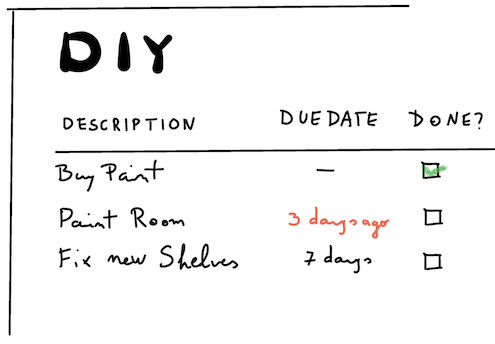 DIY
DESCRIPTION DUE DATE DONE?
Buy Paint —
Paint Room 3 days ago
Fix new Shelves 7 days